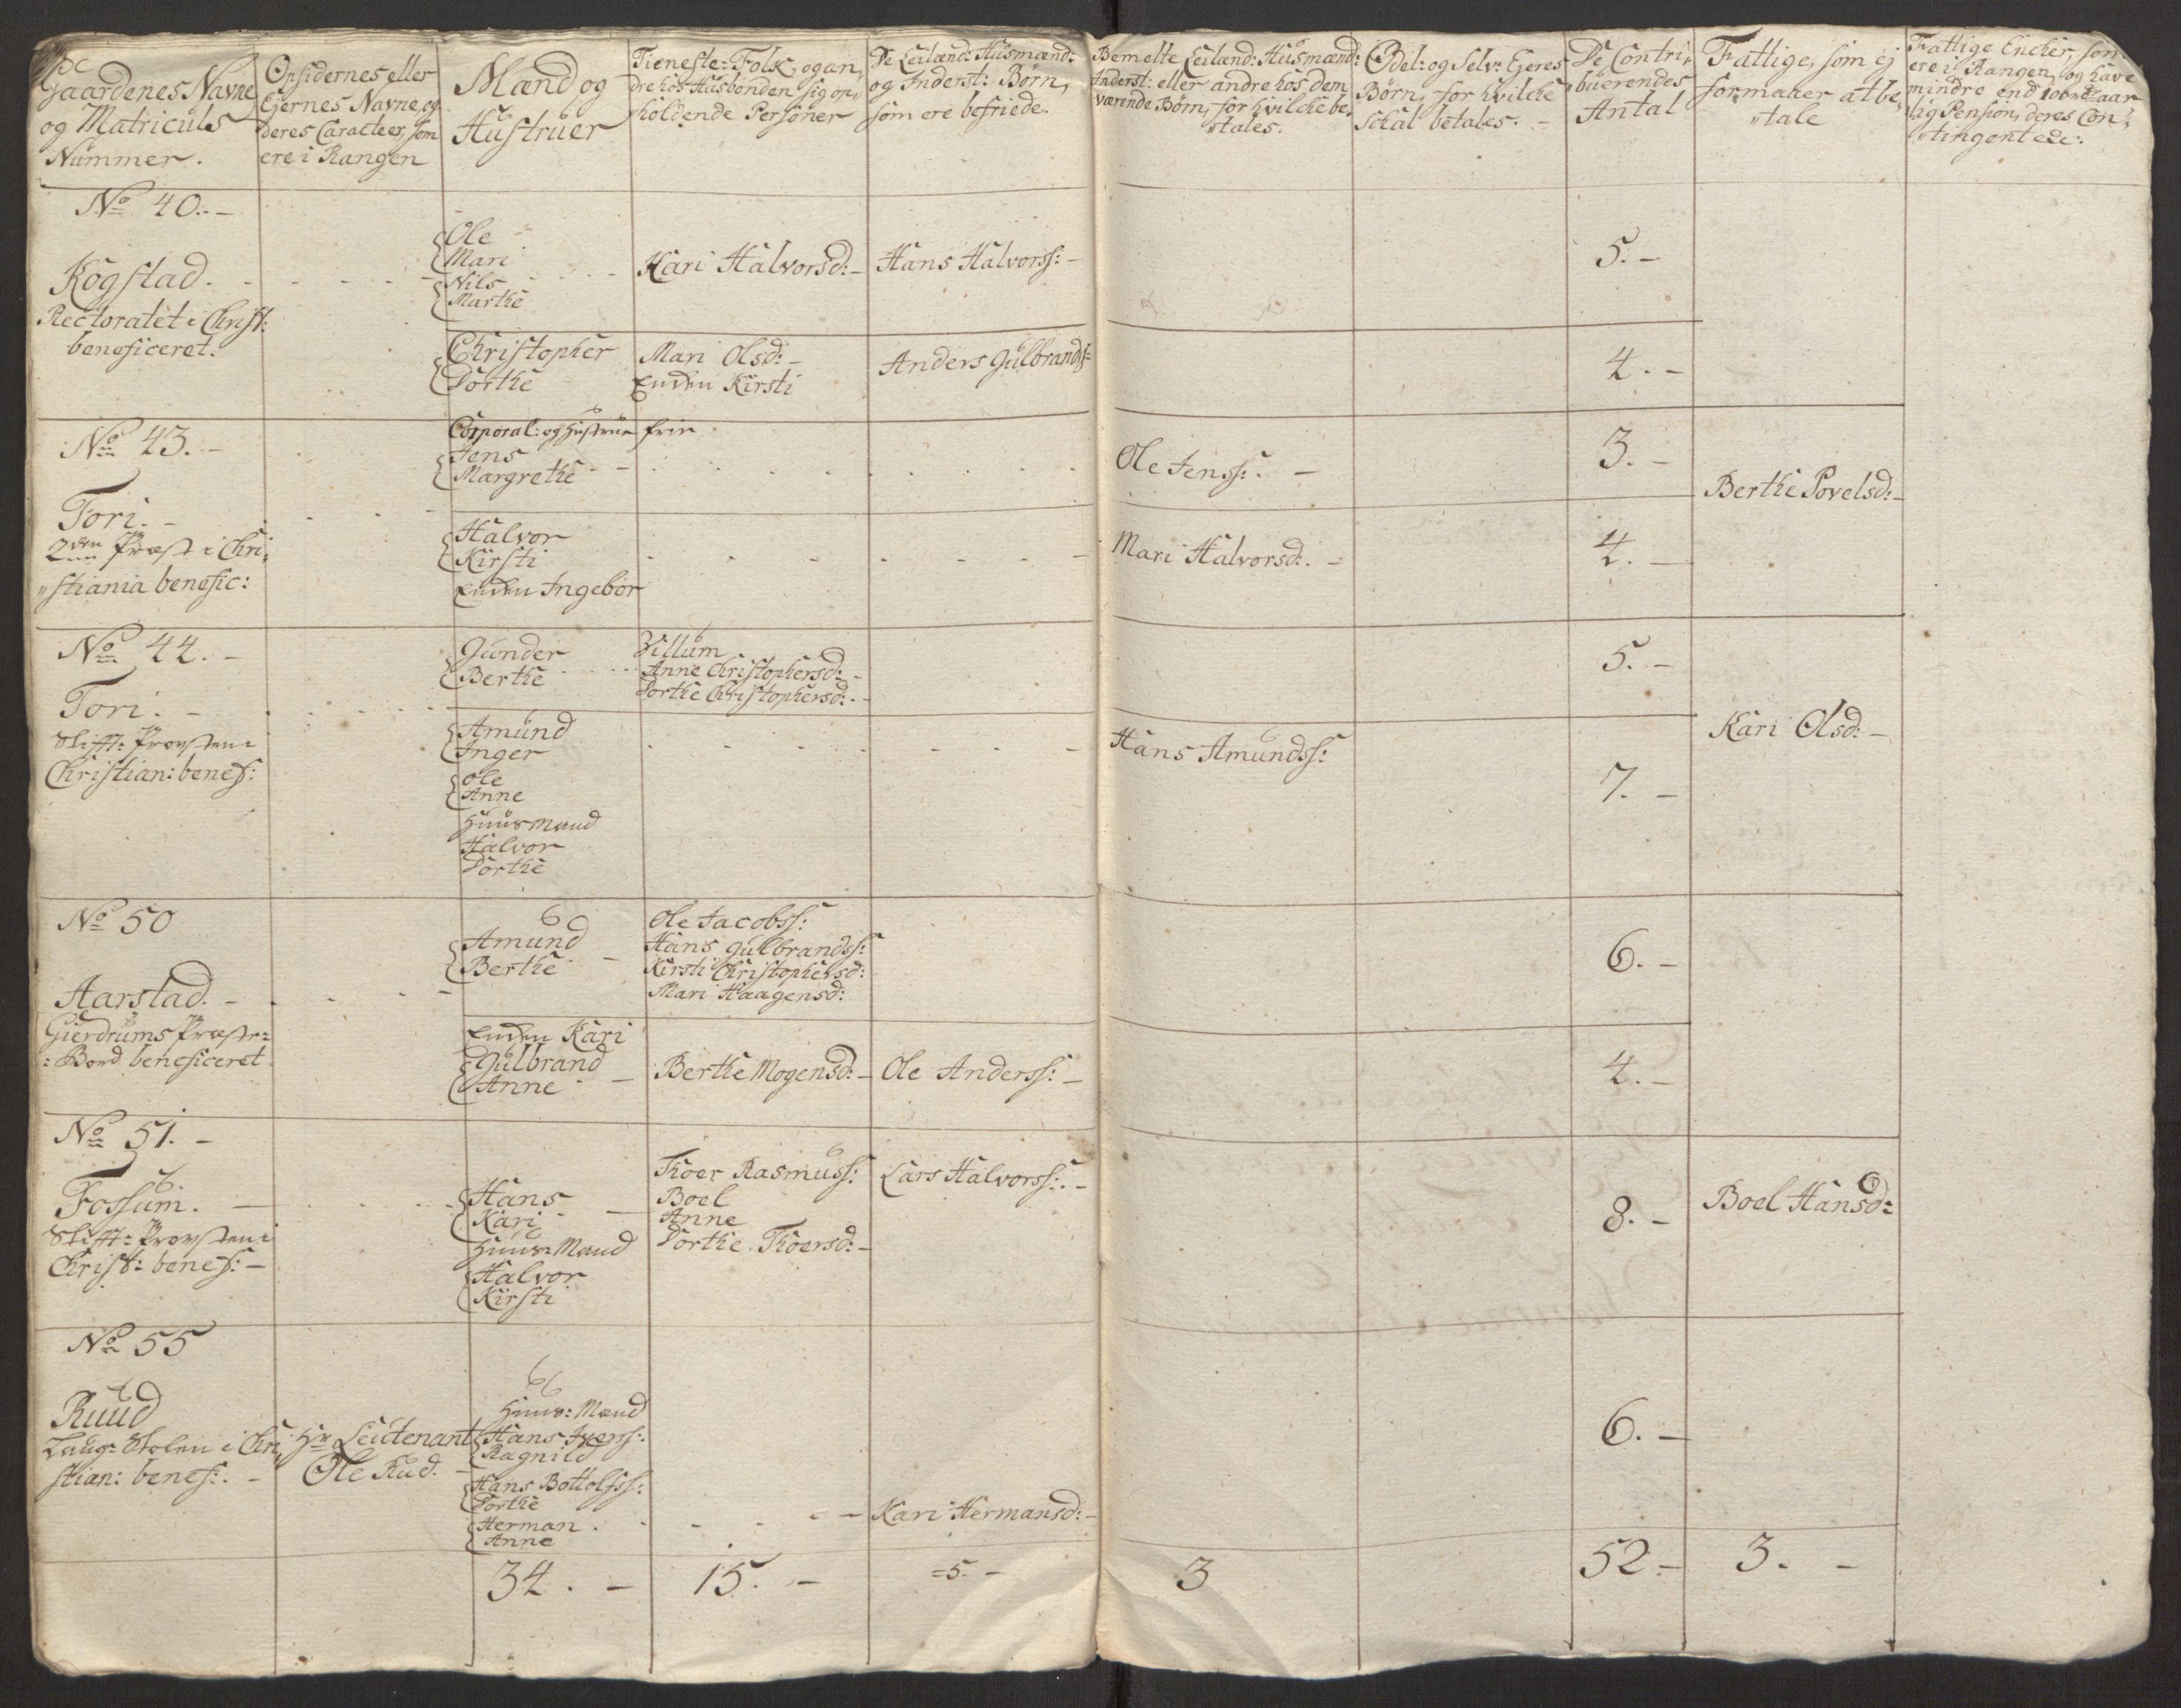 De
Gaardenes Navne
og Matriculs
Nummer.
Opsidernes eller
Ejernes Navne og
deres Caracteer, som
ere i Rangen
Mænd og
Hustruer
Tieneste-Folk, og an„
dre hos Husbonden sig op„
holdende Personer
De Leilænd: Husmænd:
og Inderst: Børn,
som ere befriede.
Bemelte Leilænd: Husmænd:
Inderst: eller andre hos dem
værende Børn, for hvilche be„
„tales.
Odel: og Selv: Ejeres
Børn, for hvilche
skal betales. -
De Contri„
buerendes
Antal
Fattige, som ej
formaaer at be„
„tale
Fattige Encker, som
ere i Rangen, og have
mindre end 100 rdr aar
lig Pension, deres Con„
„tingent etc:
No 40. -
Kogstad. -
Rectoratet i Christ:
beneficeret.
Ole
Mari
Nils
Marthe
Kari Halvorsd: -
Hans Halvorss: -
5. -
Christopher
Dorthe
Mari Olsd: -
Enken Kirsti
Anders Gulbrandss:
4. -
No 43. -
Tori. -
2den Præst i Chri„
„stiania benefic:
Corporal: og Hustrue frie
Jens
Margrethe
Ole Jenss: -
3. -
Berthe Povelsd: -
Halvor
Kirsti
Enken Ingebor
Mari Halvorsd: -
4. -
No 44. -
Tori. -
Stift: Provsten i
Christian: benef:
Gunder
Berthe
Villum
Anne Christophersd: -
Dorthe Christophersd: -
5. -
Amund
Inger
Ole
Anne
Huusmænd
Halvor
Dorthe
Hans Amundss:
7. -
Kari Olsd: -
No 50
Aarstad. -
Gierdrums Præste-
: Bord beneficeret
Amund
Berthe
Ole Jacobss:
Hans Gulbrandss:
Kirsti Christophersd:
Mari Haagensd:
6. -
Enken Kari
Gulbrand
Anne
Berthe Mogensd: -
Ole Anderss: -
4. -
No 51. -
Fossum. -
Stift: Provsten i
Christ: benef: -
Hans
Kari
Huus-Mænd
Halvor
Kirsti
Thoer Rasmuss:
Boel
Anne
Dorthe Thoersd: -
Lars Halvorss: -
8. -
Boel Hansd:
No 55
Ruud
Laug-Stolen i Chri„
stian: benef: -
Hr Leutenant
Ole Rud. -
Huus: Mænd
Hans Iverss:
Ragnild
Hans Bottolfss:
Dorthe
Herman
Anne
Kari Hermansd: -
6. -
34. -
15. -
=5. -
3
52. -
3. -